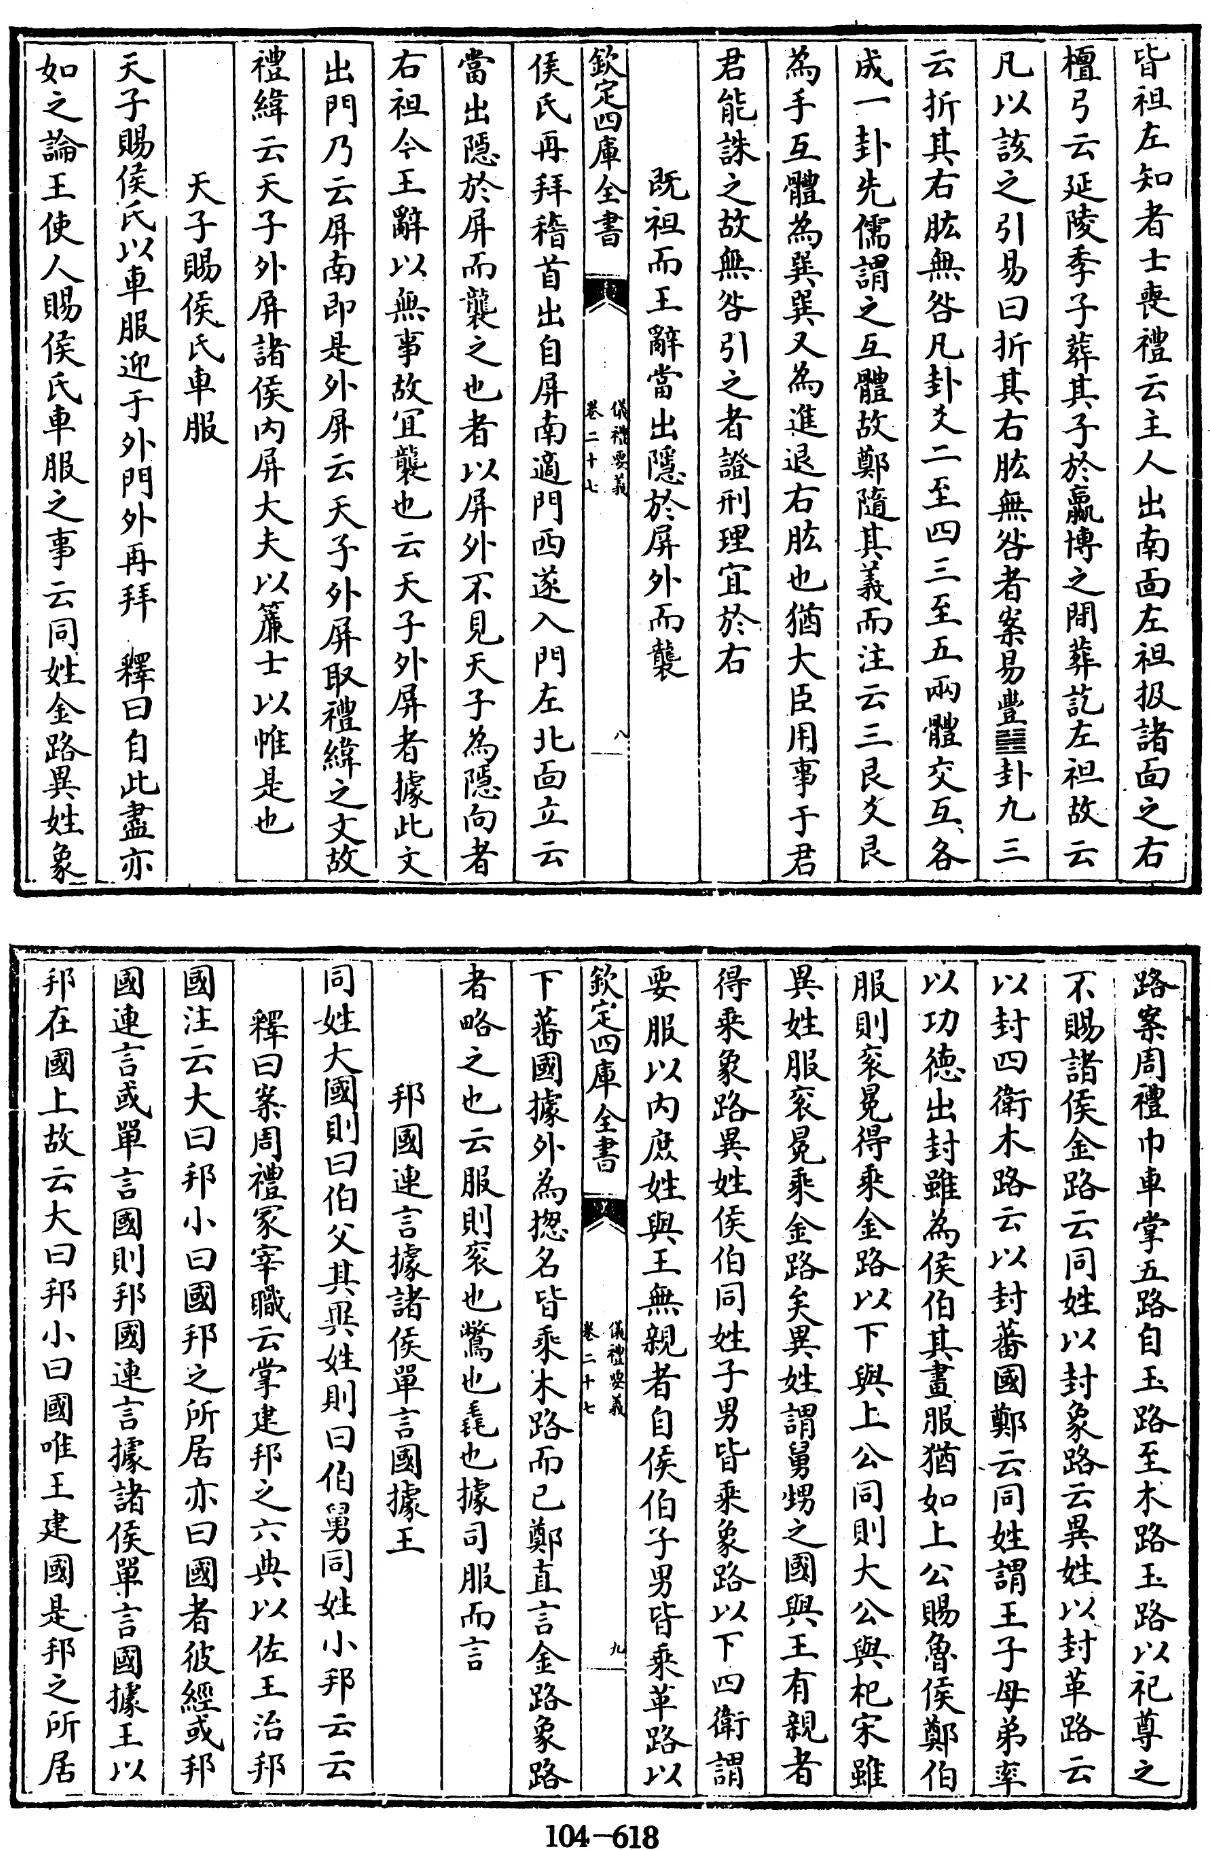 皆袒左知者士喪禮云主人出南面左袒扱諸面之右
檀弓云延陵季子葬其子於嬴博之間葬訖左袒故云
凡以該之引易曰折其右肱無咎者案易豐䷶卦九三
云折其右肱無咎凡卦爻二至四三至五兩體交互各
成一卦先儒謂之互體故鄭隨其義而注云三艮爻艮
為手互體為巽巽又為進退右肱也猶大臣用事于君
君能誅之故無咎引之者證刑理宜於右
既袒而王辭當出隱於屏外而襲
欽定四庫全書
儀禮要義
卷二十七
八
侯氏再拜稽首出自屏南適門西遂入門左北面立云
當出隱於屏而襲之也者以屏外不見天子為隱向者
右袒今王辭以無事故宜襲也云天子外屏者據此文
出門乃云屏南即是外屏云天子外屏取禮緯之文故
禮緯云天子外屏諸侯內屏大夫以簾士以帷是也
天子賜侯氏車服
天子賜侯氏以車服迎于外門外再拜 釋曰自此盡亦
如之論王使人賜侯氏車服之事云同姓金路異姓象
路案周禮巾車掌五路自玉路至木路玉路以祀尊之
不賜諸侯金路云同姓以封象路云異姓以封革路云
以封四衛木路云以封蕃國鄭云同姓謂王子母弟率
以功德出封雖為侯伯其畫服猶如上公賜魯侯鄭伯
服則衮冕得乘金路以下與上公同則大公與杞宋雖
異姓服衮冕乘金路矣異姓謂舅甥之國與王有親者
得乘象路異姓侯伯同姓子男皆乘象路以下四衛謂
要服以內庶姓與王無親者自侯伯子男皆乘革路以
欽定四庫全書
儀禮要義
卷二十七
九
下蕃國據外為揔名皆乘木路而已鄭直言金路象路
者略之也云服則衮也驚也毳也據司服而言
邦國連言據諸侯單言國據王
同姓大國則曰伯父其異姓則曰伯舅同姓小邦云云
釋曰案周禮冢宰職云掌建邦之六典以佐王治邦
國注云大曰邦小曰國邦之所居亦曰國者彼經或邦
國連言或單言國則邦國連言據諸侯單言國據王以
邦在國上故云大曰邦小曰國唯王建國是邦之所居
104-618